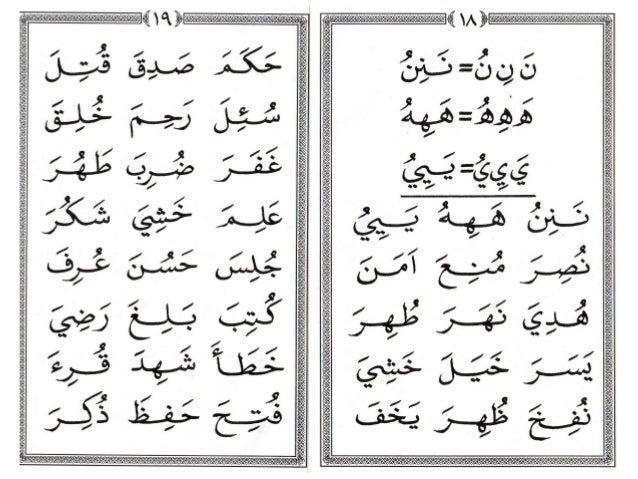 ﴿١٨﴾
نَ نِ نُ = نَنِنُ
هَ هِ هُ = هَهِهُ
يَ يِ يُ = يَيِيُ
نَنِنُ هَهِهُ يَيِيُ
نُصِرَ مُنِعَ اَمَنَ
هُدِيَ نَهَرَ طُهِرَ
يَسَرَ خَيَلَ خَشِيَ
نُفِخَ ظُهِرَ يَخَفَ
﴿١٩﴾
حَكَمَ صَدِقَ قُتِلَ
سُئِلَ رَحِمَ خُلِقَ
غَفَرَ ضُرِبَ طَهُرَ
عَلِمَ خَشِيَ شَكُرَ
جُلِسَ حَسُنَ عُرِفَ
كُتِبَ بَلِغَ رَضِيَ
خَطَأَ شَهِدَ قُرِءَ
فُتِحَ حَفِظَ ذُكِرَ